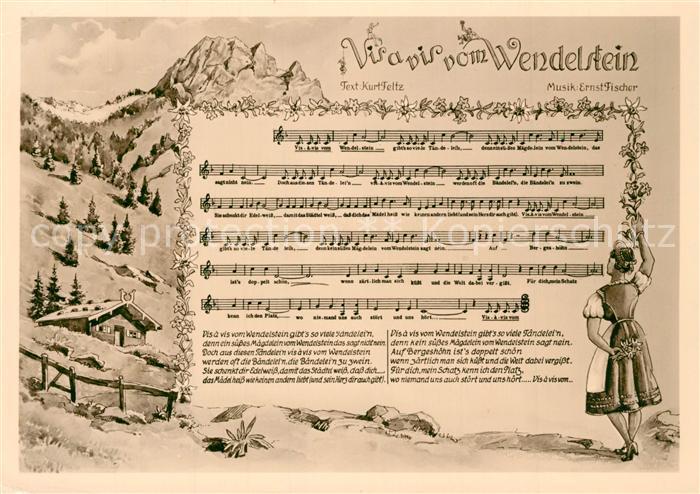 Vis a vis vom Wendelstein
Text: Kurt Feltz
Musik: Ernst Fischer
Vis-à-vis vom Wendel-stein gibt's so viele Tän-de-lei'n, denn ein süßes Mägdelein vom Wendelstein, das
sagt nicht nein. Doch aus diesen Tän-delei'n vis-à-vis vom Wendel-stein werden oft die Bändelei'n, die Bändelei'n zu zwein.
Sie schenkt dir Edel-weiß, damit das Städtel weiß, daß dich das Mädel heiß wie keinen andern liebt (und sein Herz dir auch gibt). Vis-à-vis vom Wendel-stein
gibt's so viele Tän-delei'n, denn kein süßes Mäg-delein vom Wendelstein sagt nein. Auf Ber-ges-höhn
ist's dop-pelt schön, wenn zärt-lich man sich küßt und die Welt da-bei ver-gißt. Für dich, mein Schatz
kenn ich den Platz, wo nie-mand uns auch stört und uns hört. Vis-à-vis
Vis à vis vom Wendelstein gibt's so viele Tändelei'n,
denn ein süßes Mägdelein vom Wendelstein das sagt nicht nein.
Doch aus diesen Tändelei'n vis à vis vom Wendelstein
werden oft die Bändelei'n, die Bändelei'n zu zwein.
Sie schenkt dir Edelweiß, damit das Städtel weiß, daß dich....
das Mädel heiß wie keinen andern liebt (und sein Herz dir auch gibt).
Vis à vis vom Wendelstein gibt's so viele Tändelei'n,
denn kein süßes Mägdelein vom Wendelstein das sagt nein.
Auf Bergeshöhn ist's doppelt schön
wenn zärtlich man sich küßt und die Welt dabei vergißt.
Für dich, mein Schatz kenn ich den Platz,
wo niemand uns auch stört und uns hört..... Vis à vis vom...
copyright ** Kopierschutz